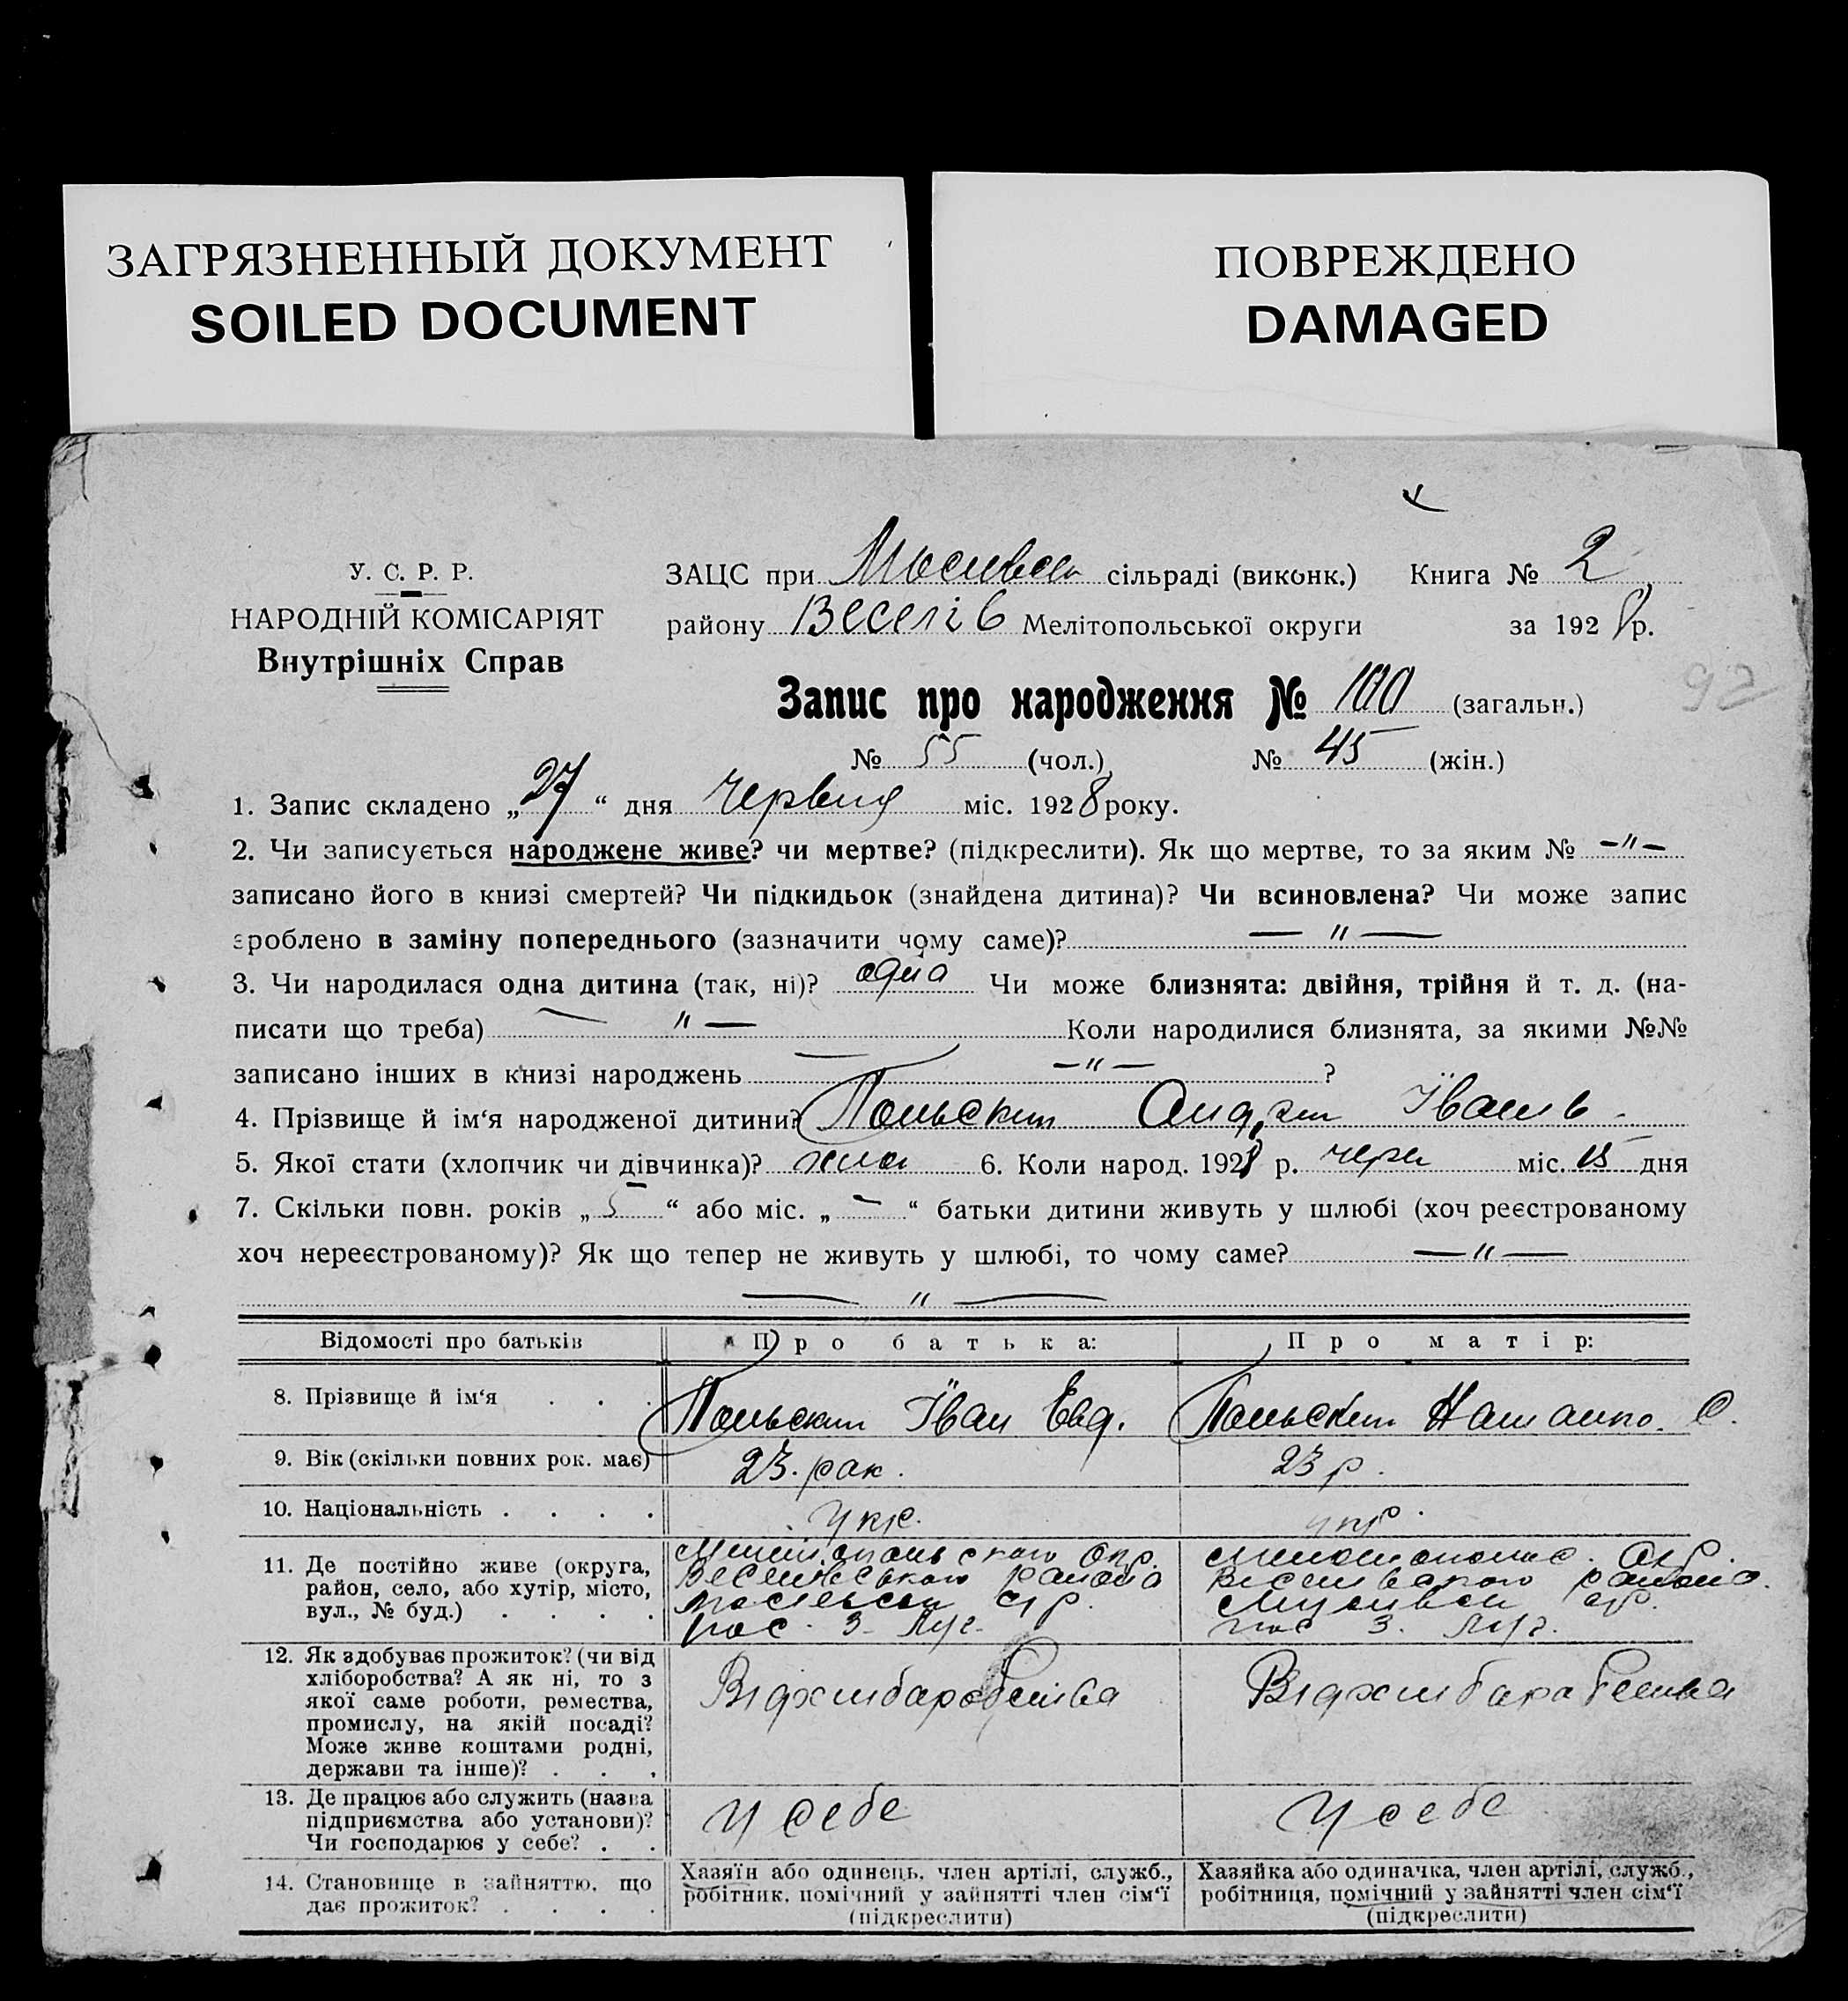 ЗАГРЯЗНЕННЫЙ ДОКУМЕНТ
SOILED DOCUMENT
ПОВРЕЖДЕНО
DAMAGED
У. С. Р. Р.
НАРОДНІЙ КОМІСАРІЯТ
Внутрішніх Справ
ЗАЦС при сільраді (виконк.) Книга № 2
району Веселів Мелітопольської округи за 1928 р.
92
Запис про народження № 100 (загальн.)
№ 55 (чол.) № 45 (жін.)
1. Запис складено „27“ дня Червня міс. 1928 року.
2. Чи записується народжене живе? чи мертве? (підкреслити). Як що мертве, то за яким № —"—
записано його в книзі смертей? Чи підкидьок (знайдена дитина)? Чи всиновлена? Чи може запис
зроблено в заміну попереднього (зазначити чому саме)? — " —
3. Чи народилася одна дитина (так, ні)? одна Чи може близнята: двійня, трійня й т. д. (на-
писати що треба) — " — Коли народилися близнята, за якими №№
записано інших в книзі народжень —"— ?
4. Прізвище й ім‘я народженої дитини? Польский Іванів
5. Якої стати (хлопчик чи дівчинка)? 6. Коли народ. 1928 р. черв міс. 15 дня
7. Скільки повн. років „5“ або міс. „—“ батьки дитини живуть у шлюбі (хоч реєстрованому
хоч нереєстрованому)? Як що тепер не живуть у шлюбі, то чому саме? —"—
— " —
Відомості про батьків Про батька: Про матір:
8. Прізвище й ім‘я . . . Польский Іван Евд. Польский О.
9. Вік (скільки повних рок. має) 23. рок. 23 р.
10. Національність . . . . Укр. укр.
11. Де постійно живе (округа,
район, село, або хутір, місто,
вул., № буд.) . . . .
Окр.
Веселівського района
с/р.
пос. 3. Луг.
Окр.
Веселівського района.
с/р.
пос 3. Луг.
12. Як здобуває прожиток? (чи від
хліборобства? А як ні, то з
якої саме роботи, ремества,
промислу, на якій посаді?
Може живе коштами родні,
держави та інше)? . . .
Відхлібаробства
Відхлібаробства
13. Де працює або служить (назва
підприємства або установи)?
Чи господарює у себе? . .
У себе
У себе
14. Становище в зайняттю, що
дає прожиток? . . . .
Хазяїн або одинець, член артілі, служб.,
робітник, помічний у зайнятті член сім‘ї
(підкреслити)
Хазяйка або одиначка, член артілі, служб.,
робітниця, помічний у зайнятті член сім‘ї
(підкреслити)